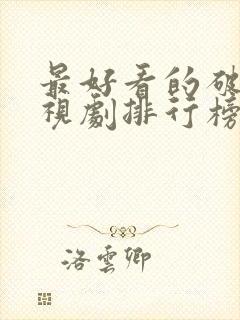 最好看的破
視劇排行榜
洛雲卿